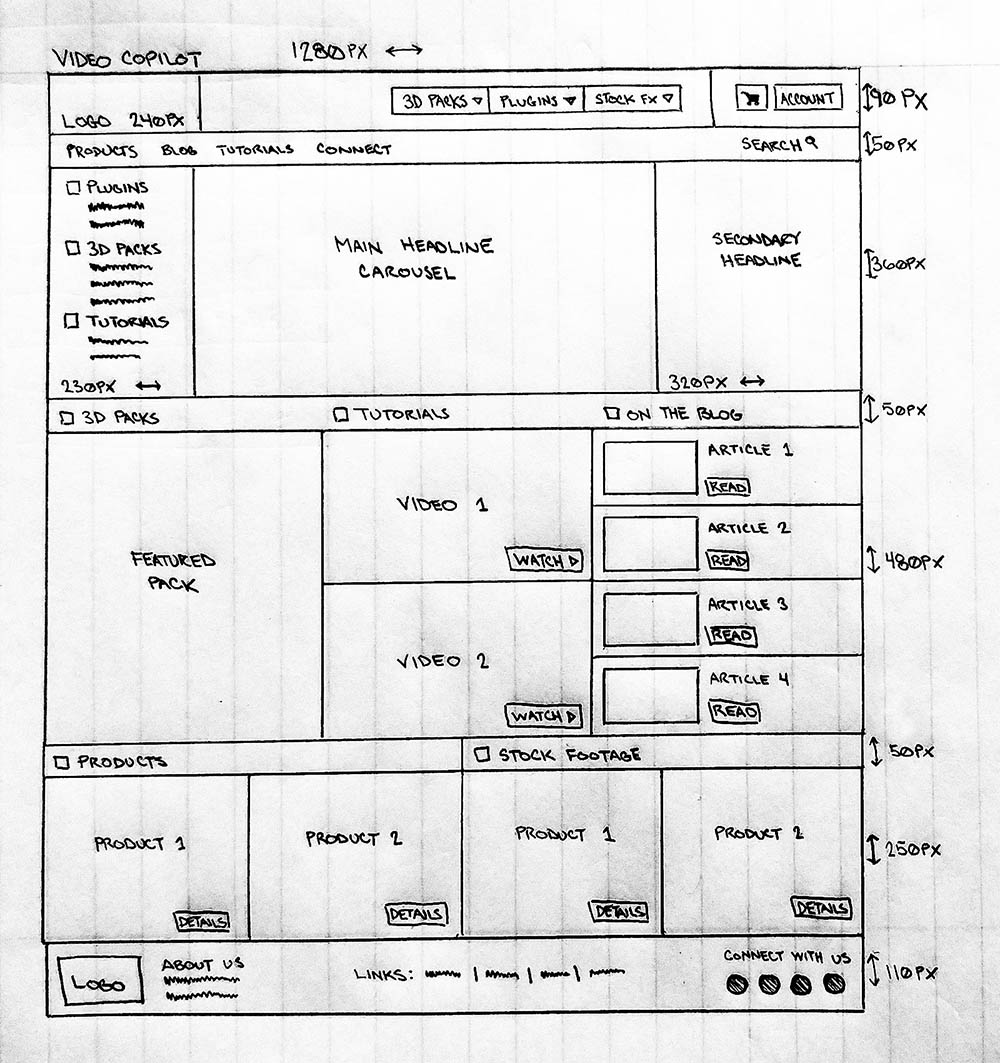 VIDEO COPILOT 1280PX
LOGO 240PX
3D PACKS PLUGINS STOCK FX
ACCOUNT
90PX
PRODUCTS BLOG TUTORIALS CONNECT SEARCH
50PX
PLUGINS
3D PACKS
TUTORIALS
230PX
MAIN HEADLINE
CAROUSEL
SECONDARY
HEADLINE
320PX
360PX
3D PACKS TUTORIALS ON THE BLOG
50PX
FEATURED
PACK
VIDEO 1
WATCH
VIDEO 2
WATCH
ARTICLE 1
READ
ARTICLE 2
READ
ARTICLE 3
READ
ARTICLE 4
READ
480PX
PRODUCTS STOCK FOOTAGE
50PX
PRODUCT 1
DETAILS
PRODUCT 2
DETAILS
PRODUCT 1
DETAILS
PRODUCT 2
DETAILS
250PX
LOGO
ABOUT US
LINKS: | | |
CONNECT WITH US
110PX